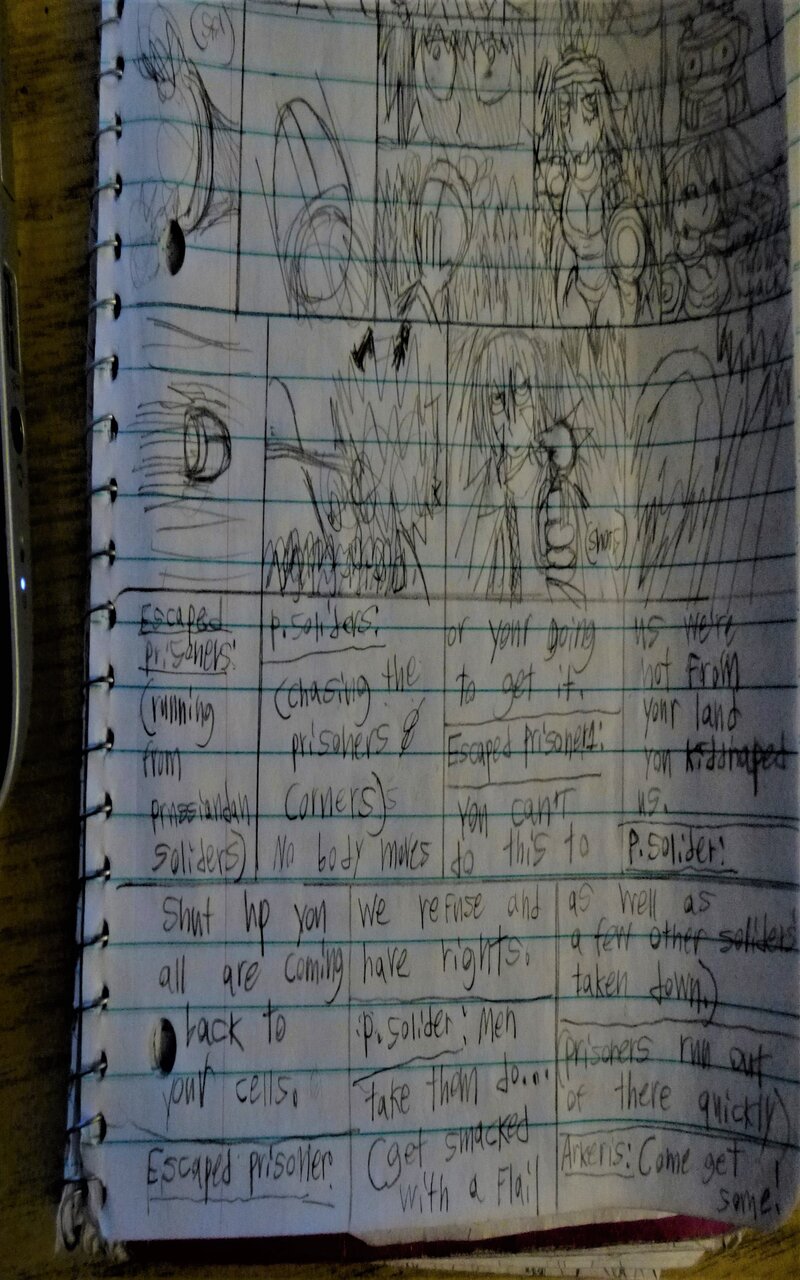 Escaped
prisoners:
(running
from
prussiandan
soliders)
P. Soliders:
(chasing the
prisoners &
corners)
No body moves
or your going
to get it.
Escaped Prisoner1:
you can't
do this to
us we're
not From
your land
you kiddnaped
us.
P. Solider:
Shut up you
all are coming
back to
your cells.
Escaped prisoner:
We refuse and
have rights.
P. Solider: Men
take them do...
(get smacked
with a Flail
as well as
a few other soliders
taken down.)
(Prisoners run out
of there quickly)
Arkeris: Come get
some!